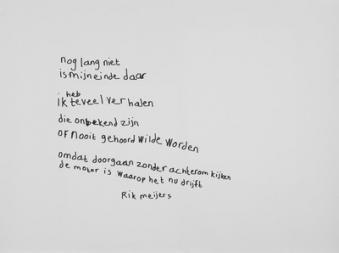 nog lang niet
is mijn einde daar
heb
Ik teveel verhalen
die onbekend zijn
of nooit gehoord wilde worden
omdat doorgaan zonder achterom kijken
de motor is waarop het nu drijft
Rik meijers